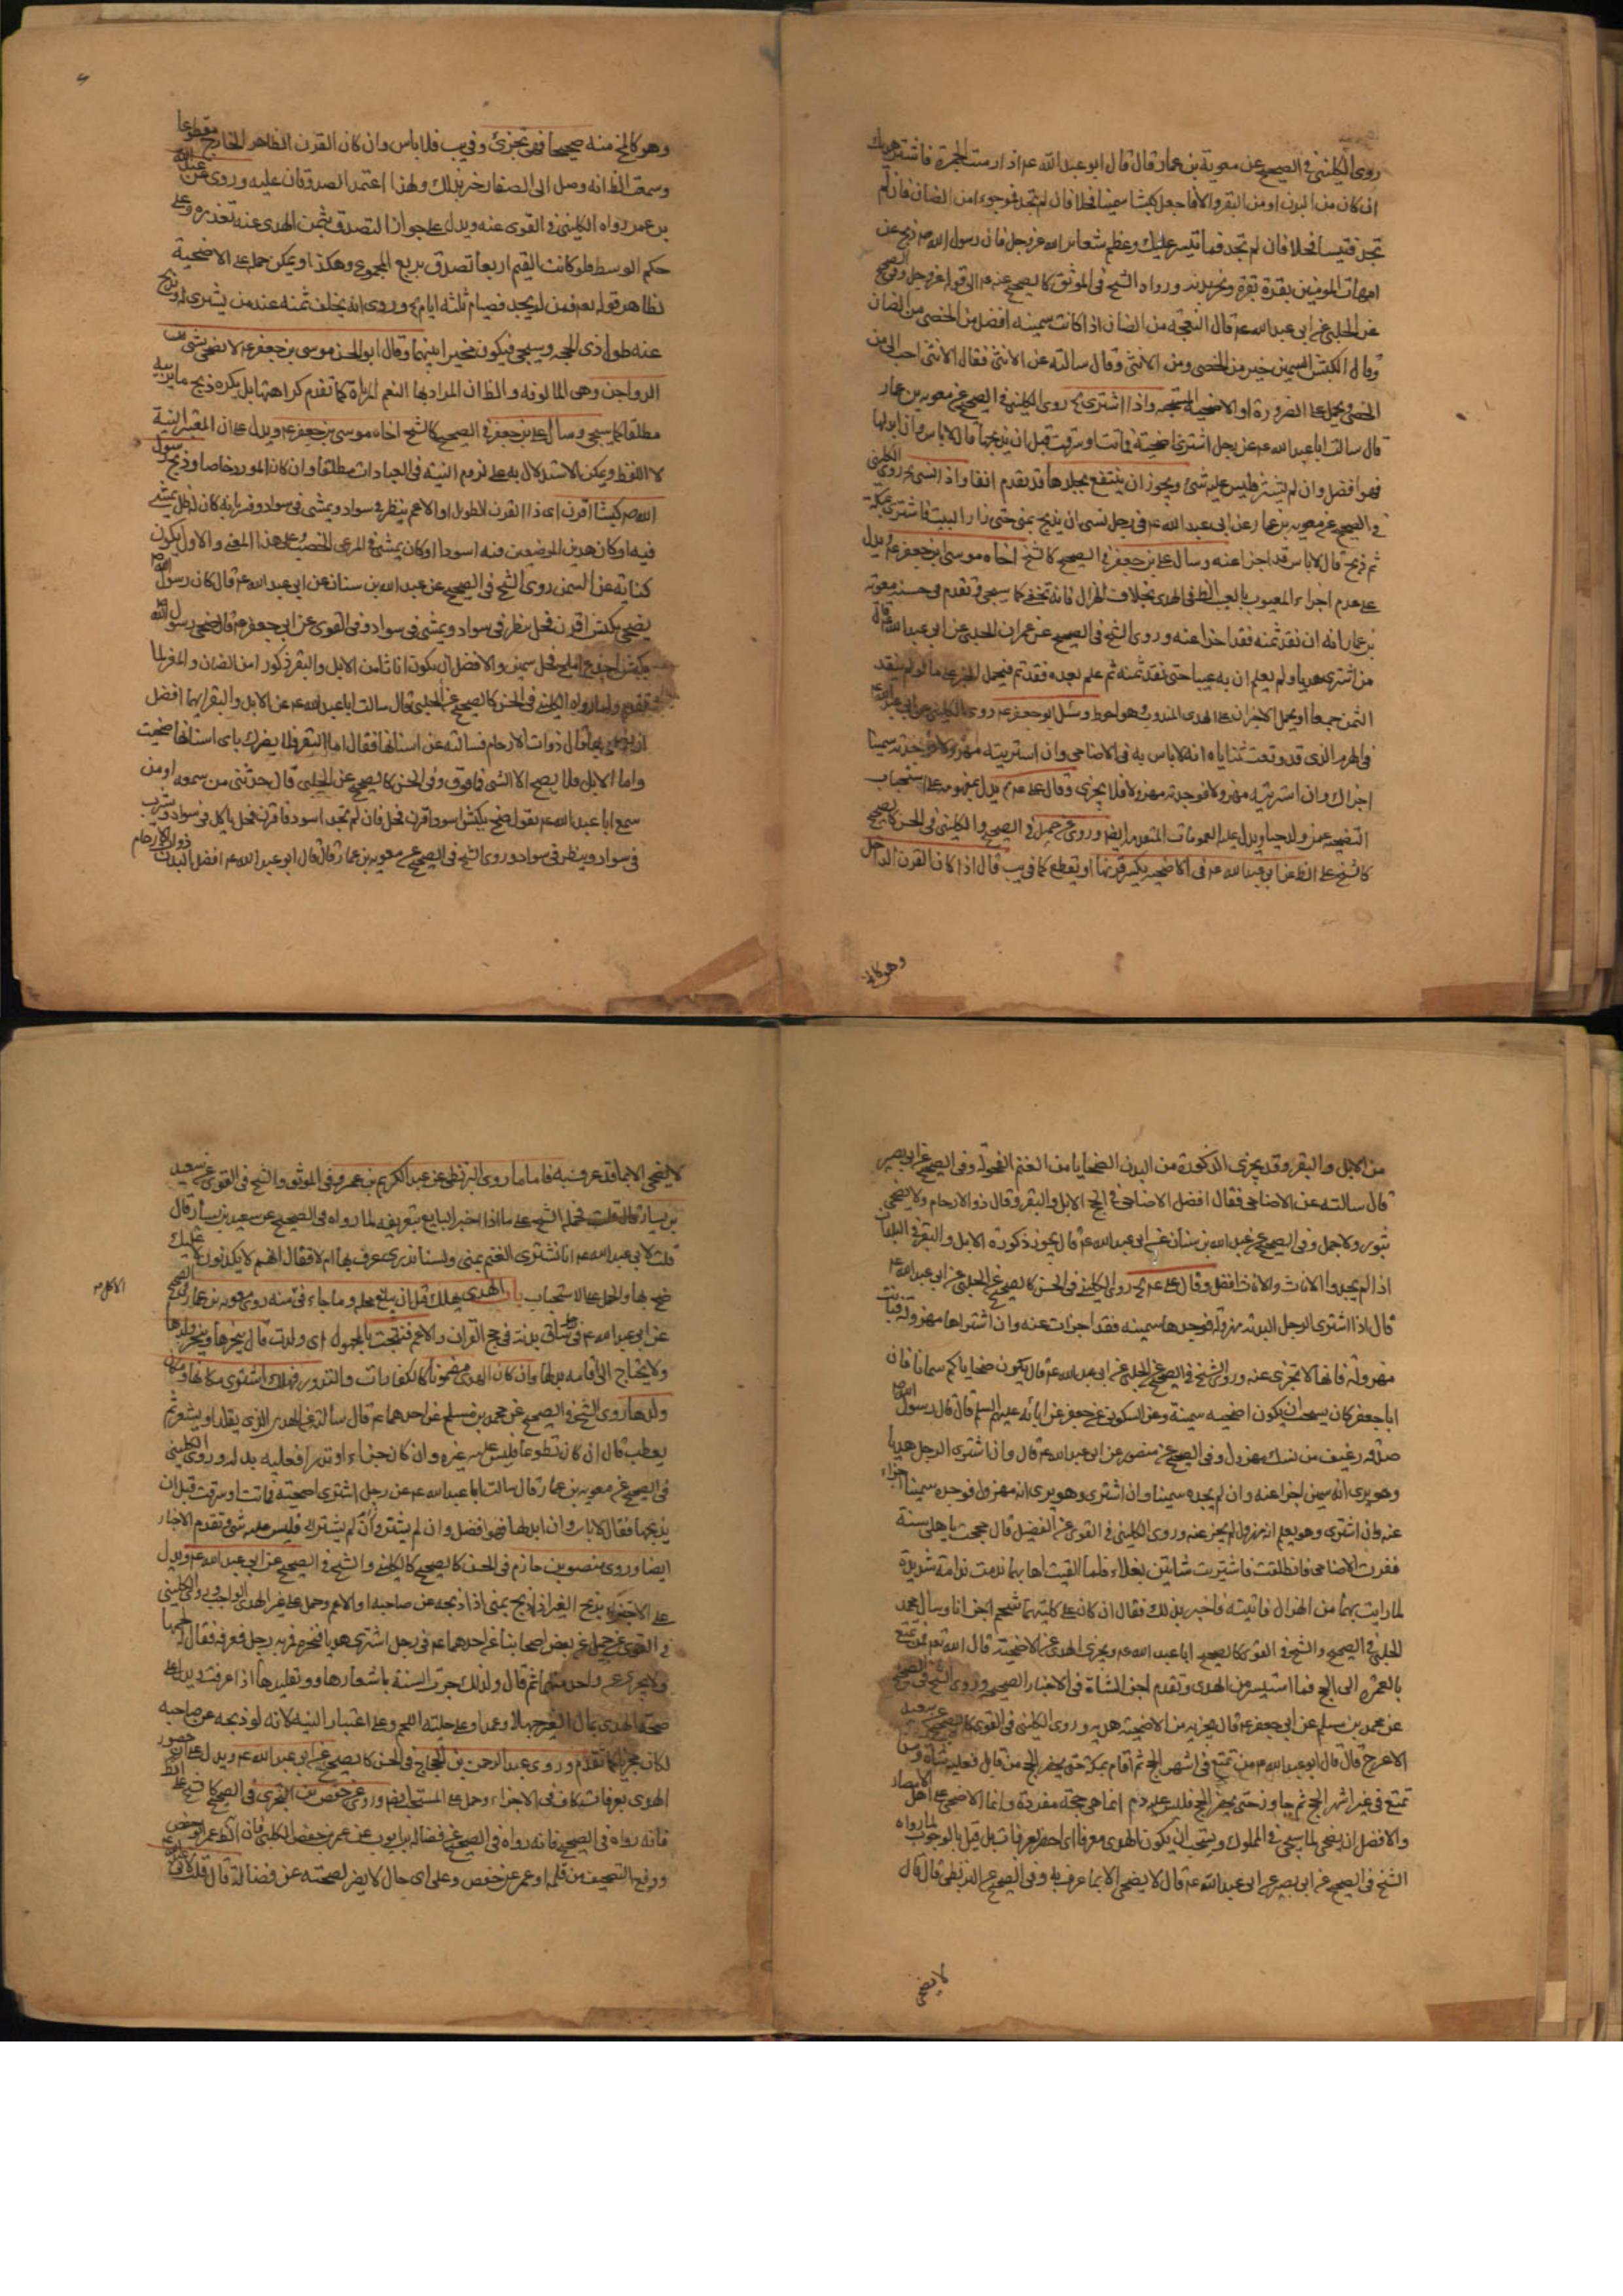 روى الكليني في الصحيح عن معوية بن عمار قال قال ابو عبد الله ع اذا رميت الجمرة فاشتر هديك
ان كان من البدن او من البقر والا فاجعل كبشا سمينا فحلا فان لم تجد فموجوءا من الضان فان لم
تجد فتيسا فحلا فان لم تجد فما تيسر عليك وعظم شعاير الله عز وجل فان رسول الله ص ذبح عن
امهات المومنين بقرة بقرة ونحر بدنة ورواه الشيخ في الموثق كالصحيح عنه ع الى قوله عز وجل وفي الصحيح
عن الحلبي عن ابي عبد الله ع قال النعجة من الضان اذا كانت سمينه افضل من الخصي من الضان
وقال الكبش السمين خير من الخصي ومن الانثى وقال سالته عن الانثى فقال الانثى احب الي من
الخصي ويحمل على الضرورة او الاضحية المستحبه واذا اشترى روى الكليني في الصحيح عن معويه بن عمار
قال سالت ابا عبد الله ع عن رجل اشترى اضحية فماتت او سرقت قبل ان يذبحها قال لا باس وان ابدلها
فهو افضل وان لم يشتر فليس عليه شئ ويجوز ان ينتفع بجلدها قد تقدم انفا واذا نسى روى الكليني
في الصحيح عن معويه بن عمار عن ابي عبد الله ع في رجل نسى ان يذبح بمنى حتى زار البيت فاشترى بمكة
ثم ذبح قال لا باس قد اجزا عنه وسال على بن جعفر في الصحيح كالشيخ اخاه موسى بن جعفر ع ويدل
على عدم اجزاء المعيوب بالعيب الظ في الهدى بخلاف الهزال فانه تخفى كما سيجى وتقدم في حسنه معويه
بن عمار انه ان نقد ثمنه فقد اجزا عنه وروى الشيخ في الصحيح عن عمران الحلبي عن ابي عبد الله ع قال
من اشترى هديا ولم يعلم ان به عيبا حتى نقد ثمنه ثم علم بعده فقد تم فيحمل الخبر على ما لم ينقد
الثمن جمعا او يحمل الاجزاء على الهدى المندوب وهو احوط وسئل ابو جعفر ع روى الكليني عن ابي عبد الله ع
في الهرم الذى قد وقعت ثناياه انه لا باس به في الاضاحى وان اشتريته مهزولا فوجدته سمينا
اجزاك وان اشتريته مهزولا فوجدته مهزولا فلا يجزى وقال على ع يدل بعمومه على استحباب
كالشيخ على الظ عن ابي عبد الله ع في الاضحيه يكسر قرنها او يقطع كما في يب قال اذا كان القرن الداخل
وهو كالمخ
وهو كالمخ منه صحيحا فهى تجزئ وفي يب فلا باس وان كان القرن الظاهر الخارج مقطوعا
وسمعت الظ انه وصل الى الصفار خبر بذلك ولهذا اعتمد الصدوقان عليه وروى عن عبد الله
بن عمر رواه الكليني في القوى عنه ويدل على جواز التصدق بثمن الهدى عنه تعذره وعلى
حكم الوسط فلو كانت القيم اربعا تصدق بربع المجموع وهكذا ويمكن حمله على الاضحية
لظاهر قوله تعم فمن لم يجد فصيام ثلثه ايام وروى انه يخلف ثمنه عند من يشترى له ويذبح
عنه طول ذى الحجه وسيجى فيكون مخيرا بينهما وقال ابو الحسن موسى بن جعفر ع لا تضحى بشئ من
الدواجن وهى المالوفه والظ ان المراد بها النعم المرباة كما تقدم كراهتها بل يكره ذبح ما يربيه
مطلقا كما سيجى وسال على بن جعفر في الصحيح كالشيخ اخاه موسى بن جعفر ع ويدل على ان المعتبر النية
لا اللفظ ويمكن الاستدلال به على لزوم النيته في العبادات مطلقا وان كان المورد خاصا وذبح رسول
الله ص كبشا اقرن اى ذا القرن الطويل او الاعم ينظر في سواد ويمشى في سواد وفسر بانه كان له ظل يمشى
فيه او كان هذين الموضعين منه اسودا او كان يمشى في المرعى الخصب وعلى هذا المعنى والاول يكون
كناية عن السمن روى الشيخ في الصحيح عن عبد الله بن سنان عن ابي عبد الله ع قال كان رسول الله ص
يضحى بكبش اقرن فحل ينظر في سواد ويمشى في سواد وفي القوى عن ابي جعفر ع قال ضحى رسول الله ص
بكبش اجذع املح فحل سمين والافضل ان يكون اناثا من الابل والبقر وذكورا من الضان والمعز لما
تقدم ولما رواه الكليني في الحسن كالصحيح عن الحلبي قال سالت ابا عبد الله ع عن الابل والبقر ايهما افضل
ان يضحى بها قال ذوات الارحام فسالته عن اسنانها فقال اما البقر فلا يضرك باى اسنانها ضحيت
واما الابل فلا يصح الا الثنى فما فوق وفي الحسن كالصحيح عن الحلبي قال حدثنى من سمعه او من
سمع ابا عبد الله ع يقول ضح بكبش اسود اقرن فحل فان لم تجد اسود فاقرن فحل ياكل في سواد ويشرب
في سواد وينظر في سواد وروى الشيخ في الصحيح عن معويه بن عمار قال قال ابو عبد الله ع افضل البدن ذوات الارحام
من الابل والبقر وقد يجزى الذكورة من البدن الضحايا من الغنم الفحولة وفي الصحيح عن ابي بصير
قال سالته عن الاضاحى فقال افضل الاضاحى في الحج الابل والبقر وقال ذوو الارحام ولا يضحى
بثور ولا جمل وفي الصحيح عن عبد الله بن سنان عن ابي عبد الله ع قال يجوز ذكورة الابل والبقر في البلدان
اذا لم يجدوا الاناث والاناث افضل وقال على ع روى الكليني في الحسن كالصحيح عن الحلبي عن ابي عبد الله ع
قال اذا اشترى الرجل البدنه مهزولة فوجدها سمينه فقد اجزات عنه وان اشتراها مهزولة فكانت
مهزولة فانها لا تجزى عنه وروى الشيخ في الصحيح عن الحلبي عن ابي عبد الله ع قال يكون ضحاياكم سمانا فان
ابا جعفر كان يستحب ان يكون اضحيه سمينة وعن السكونى عن جعفر عن ابائه عليهم السلم قال قال رسول الله ص
صدقة رغيف من نسك مهزول وفي الصحيح عن منصور عن ابي عبد الله ع قال وان اشترى الرجل هديا
وهو يرى انه سمين اجزا عنه وان لم يجده سمينا وان اشترى وهو يرى انه مهزول فوجده سمينا اجزاء
عنه وان اشترى وهو يعلم انه مهزول لم يجز عنه وروى الكليني في القوى عن الفضيل قال حججت باهلى سنة
فعزت الاضاحى فانطلقت فاشتريت شاتين بغلاء فلما القيت اهابهما ندمت ندامة شديدة
لما رايت بهما من الهزال فاتيته فاخبرته بذلك فقال ان كان على كليتهما شحم اجزانا وسال محمد
الحلبي في الصحيح والشيخ في القوى كالصحيح ابا عبد الله ع ويجزى الهدى عن الاضحية قال الله تعم فمن تمتع
بالعمرة الى الحج فما استيسر من الهدى وتقدم اجزاء الشاة في الاخبار الصحيحه وروى الشيخ في الصحيح
عن محمد بن مسلم عن ابي جعفر ع قال يجزيه من الاضحية هديه وروى الكليني في القوى كالصحيح عن سعيد
الاعرج قال قال ابو عبد الله ع من تمتع في اشهر الحج ثم اقام بمكة حتى يحضر الحج من قابل فعليه شاة ومن
تمتع في غير اشهر الحج ثم جاوز حتى يحضر الحج فليس عليه دم انما هى حجة مفردة وانما الاضحى على اهل الامصار
والافضل ان يضحى لما سيجى في المملوك ويستحب ان يكون الهدى معرفا اى احضر بعرفات بل قيل بالوجوب لما رواه
الشيخ في الصحيح عن ابي بصير عن ابي عبد الله ع قال لا يضحى الا بما عرف به وفي الصحيح عن البزنطى قال قال
لا يضحى
لا يضحى الا بما قد عرف به فاما ما روى البزنطى عن عبد الكريم بن عمرو في الموثق والشيخ في القوى عن سعيد
بن يسار قال قلت فحمله الشيخ على ما اذا اخبر البايع بتعريفه لما رواه في الصحيح عن سعيد بن يسار قال
قلت لابي عبد الله ع انا نشترى الغنم بمنى ولسنا ندرى عرف بها ام لا فقال انهم لا يكذبون لا عليك
ضح بها والحمل على الاستحباب باب الهدى يهلك قبل ان يبلغ محله وما جاء في
عن ابي عبد الله ع في ساق بدنة في حج القران والاعم فنتجت بالمجهول اى ولدت قال ينحرها وينحر ولدها
ولا يحتاج الى اقامه بدلها وان كان الهدى مضمونا كالكفارات والنذور فهلك اشترى مكانها ومكان
ولدها روى الشيخ في الصحيح عن محمد بن مسلم عن احدهما ع قال سالته عن الهدى الذى يقلد او يشعر ثم
يعطب قال ان كان تطوعا فليس عليه غيره وان كان جزاء او نذرا فعليه بدله وروى الكليني
في الصحيح عن معويه بن عمار قال سالت ابا عبد الله ع عن رجل اشترى اضحية فماتت او سرقت قبل ان
يذبحها فقال لا باس وان ابدلها فهو افضل وان لم يشتر فليس عليه شئ وتقدم الاخبار
ايضا وروى منصور بن حازم في الحسن كالصحيح كالكليني والشيخ في الصحيح عن ابي عبد الله ع ويدل
على الاجتزاء بذبح الغير اذا ذبح بمنى اذا ذبحه عن صاحبه او الاعم وحمل على غير الهدى الواجب وروى الكليني
في القوى عن جميل عن بعض اصحابنا عن احدهما ع في رجل اشترى هديا فنحره فمر به رجل فعرفه فقال
ولا يجزى عن واحد منهما ثم قال ولذلك جرت السنة باشعارها وتقليدها اذا عرفت ويدل على
لكان مجزيا كما تقدم وروى عبد الرحمن بن الحجاج في الحسن كالصحيح عن ابي عبد الله ع ويدل على ان حضور
الهدى بعرفات كاف في الاجزاء وحمل على المستحب ايضا وروى عن حفص بن البخترى في الصحيح كالشيخ
فانه رواه في الصحيح فانه رواه في الصحيح عن فضاله بن ايوب عن عمر بن حفص الكلبى فان الظ عمر او حفص
ووقع التصحيف من قلمه او عمر عن حفص وعلى اى حال لا يضر لصحته عن فضالة قال قلت لابي